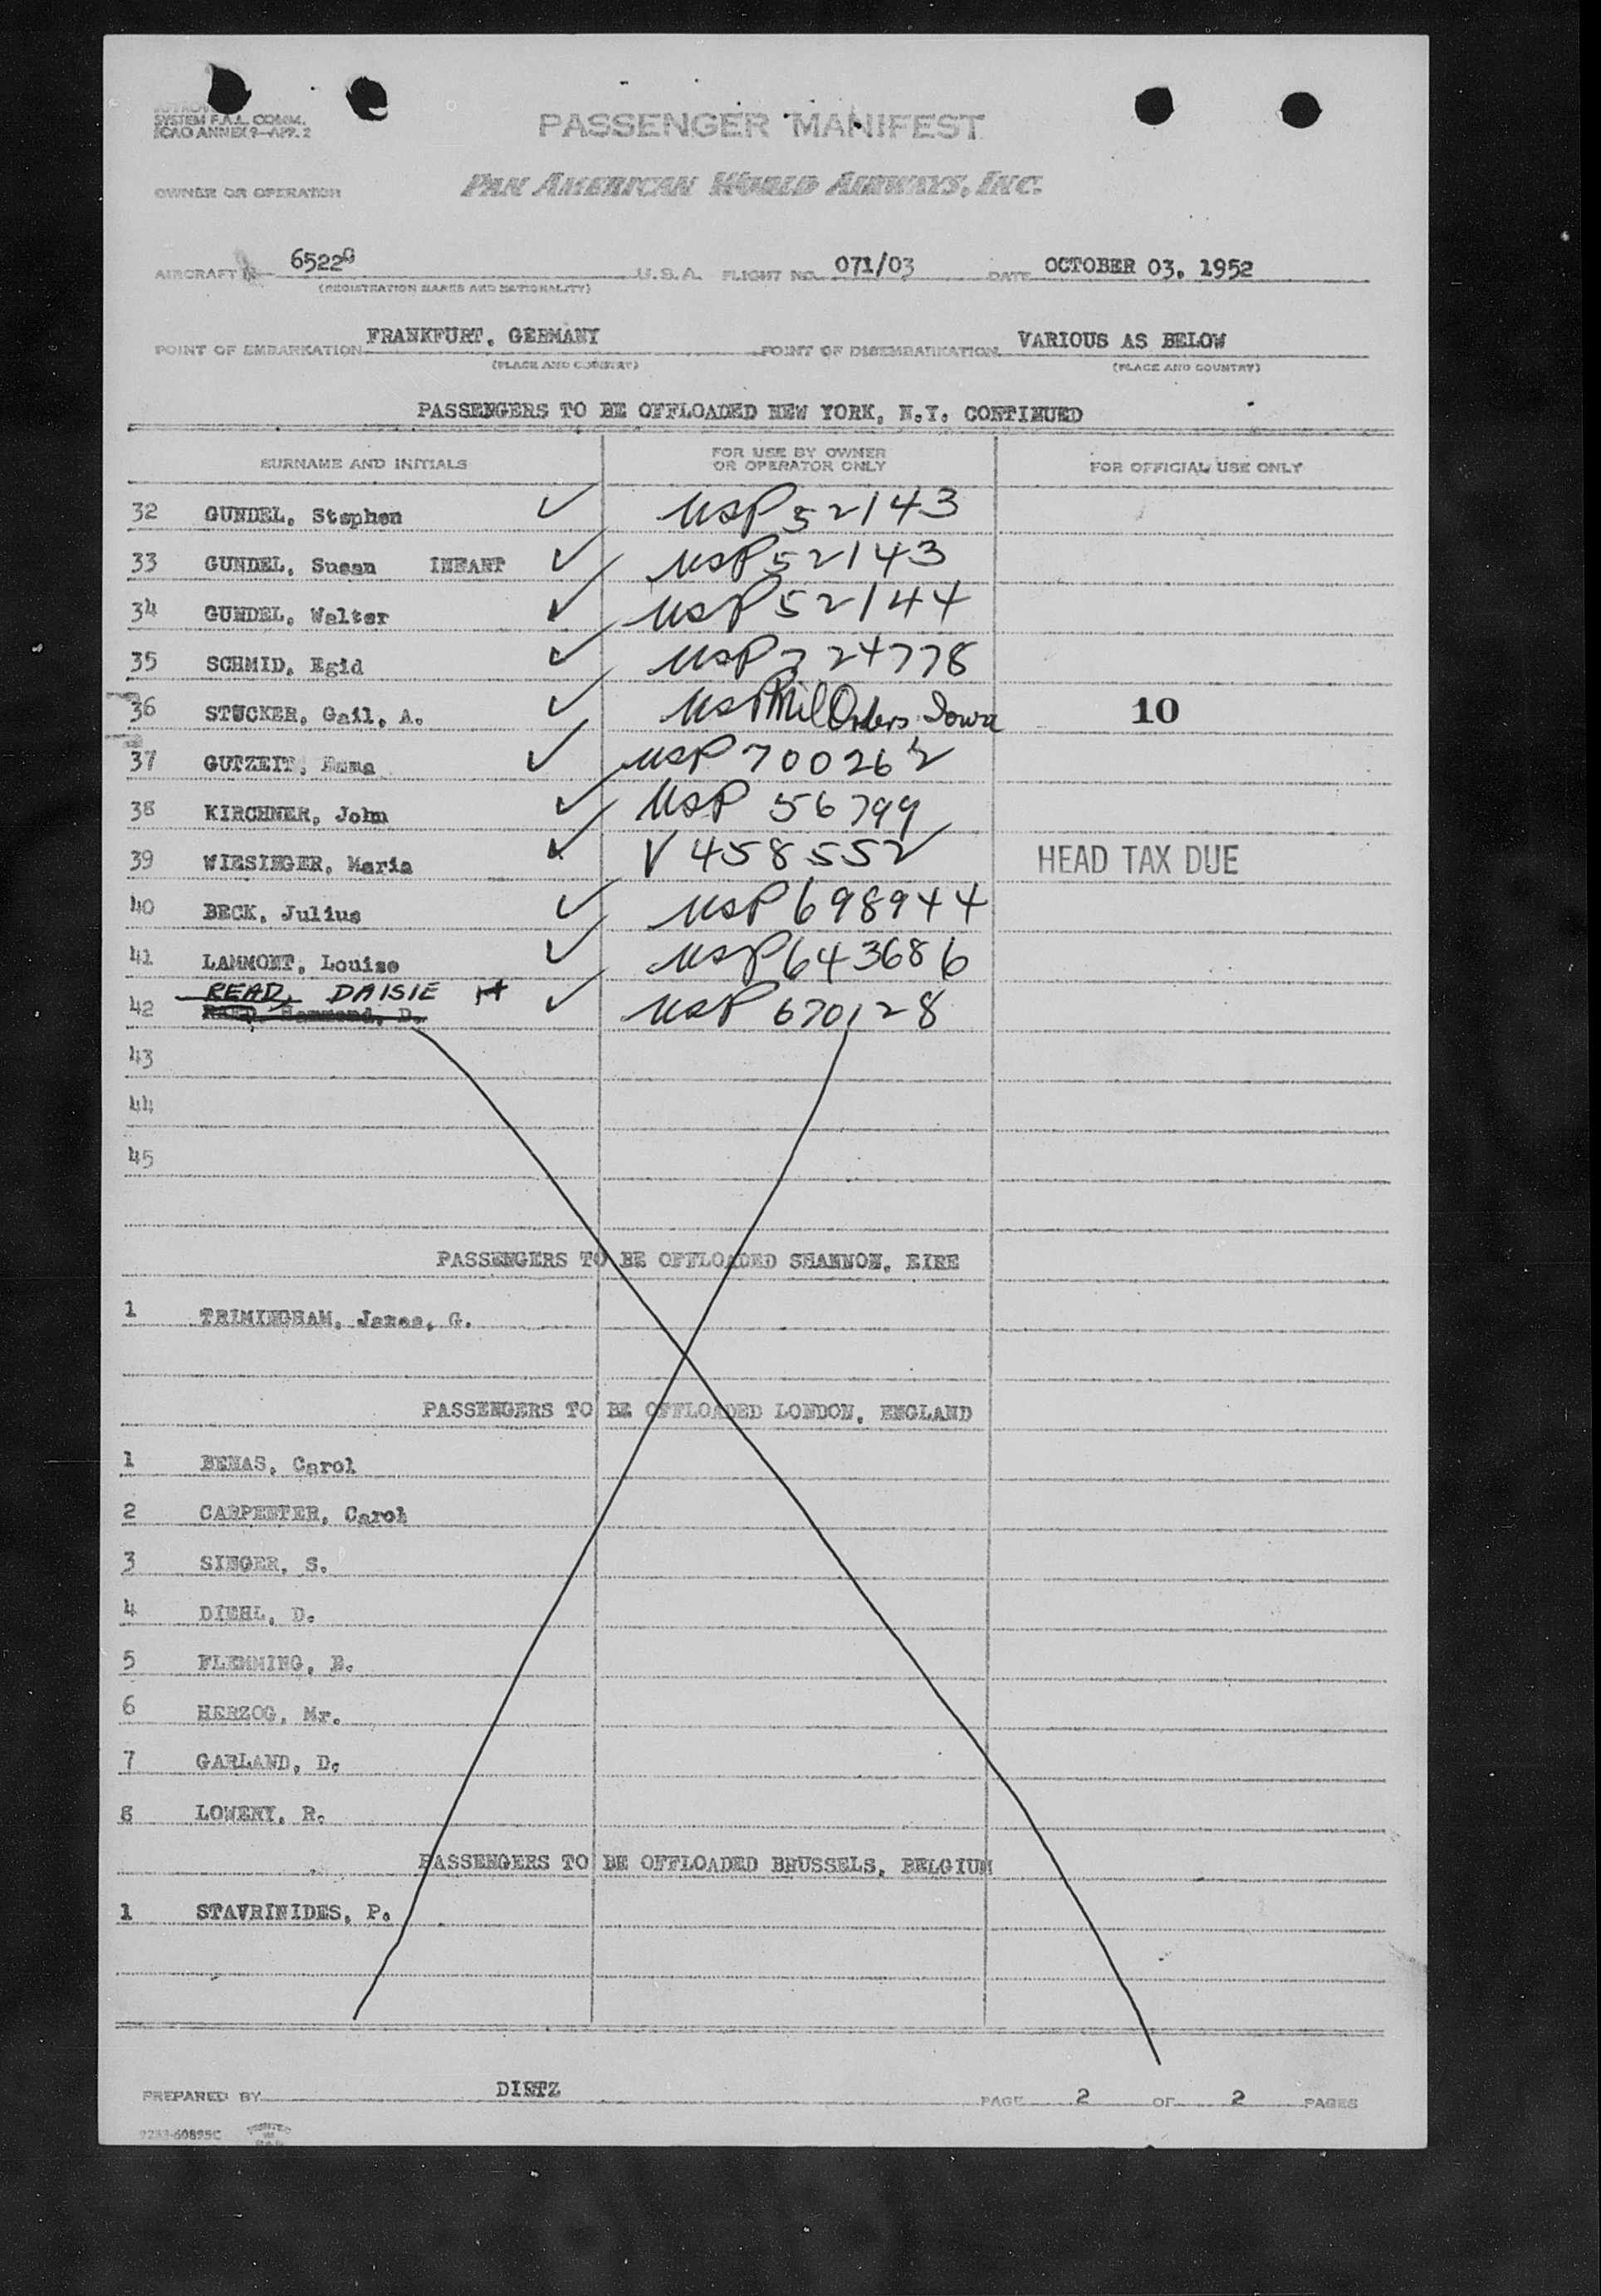 SYSTEM F.A.L. COMM.
ICAO ANNEX 9—APP. 2
PASSENGER MANIFEST
OWNER OR OPERATOR PAN AMERICAN WORLD AIRWAYS, INC.
AIRCRAFT 6522 U.S.A. FLIGHT NO. 071/03 DATE OCTOBER 03, 1952
(REGISTRATION MARKS AND NATIONALITY)
POINT OF EMBARKATION FRANKFURT, GERMANY POINT OF DISEMBARKATION VARIOUS AS BELOW
(PLACE AND COUNTRY) (PLACE AND COUNTRY)
PASSENGERS TO BE OFFLOADED NEW YORK, N.Y. CONTINUED
SURNAME AND INITIALS FOR USE BY OWNER OR OPERATOR ONLY FOR OFFICIAL USE ONLY
32 GUNDEL, Stephen ✓ USP 52143
33 GUNDEL, Susan INFANT ✓ USP 52143
34 GUNDEL, Walter ✓ USP 52144
35 SCHMID, Egid ✓ USP 724778
36 STUCKER, Gail, A. ✓ Mil Orders Iowa 10
37 GUTZEIT, Emma ✓ USP 700262
38 KIRCHNER, John ✓ USP 56799
39 WIESINGER, Maria ✓ V 458552 HEAD TAX DUE
40 BECK, Julius ✓ USP 698944
41 LAMMONT, Louise ✓ USP 643686
READ, DAISIE H
42 Hammond, D. ✓ USP 670128
43
44
45
PASSENGERS TO BE OFFLOADED SHANNON, EIRE
1 TRIMINGHAM, James, G.
PASSENGERS TO BE OFFLOADED LONDON, ENGLAND
1 BENAS, Carol
2 CARPENTER, Carol
3 SINGER, S.
4 DIEHL, D.
5 FLEMMING, B.
6 HERZOG, Mr.
7 GARLAND, D.
8 LOWERY, R.
PASSENGERS TO BE OFFLOADED BRUSSELS, BELGIUM
1 STAVRINIDES, P.
PREPARED BY DIETZ PAGE 2 OF 2 PAGES